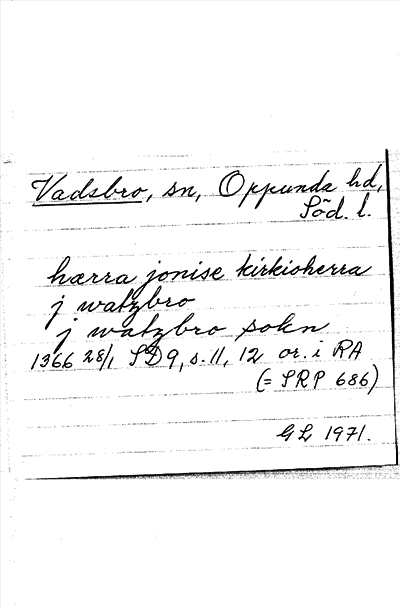 Vadsbro, sn, Oppunda hd,
Söd. l.
hærra jonise kirkioherra
j watzbro
j watzbro sokn
1366 28/1 SD9, s. 11, 12 or. i RA
(= SRP 686)
GL 1971.